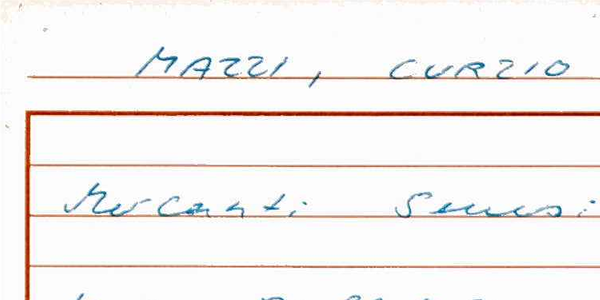 MAZZI, CURZIO
Mercanti Senesi